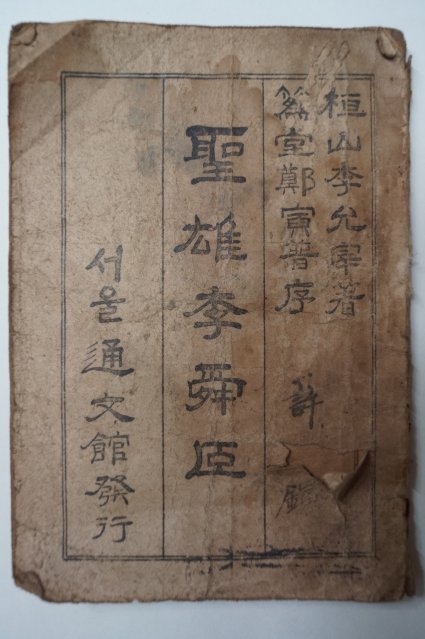 桓山李允宰著
爲堂鄭寅普序
聖雄李舜臣
서울通文館發行
許